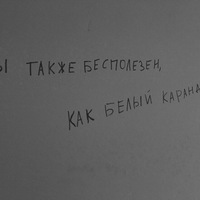 Ы ТАКЖЕ БЕСПОЛЕЗЕН,
КАК БЕЛЫЙ КАРАНД